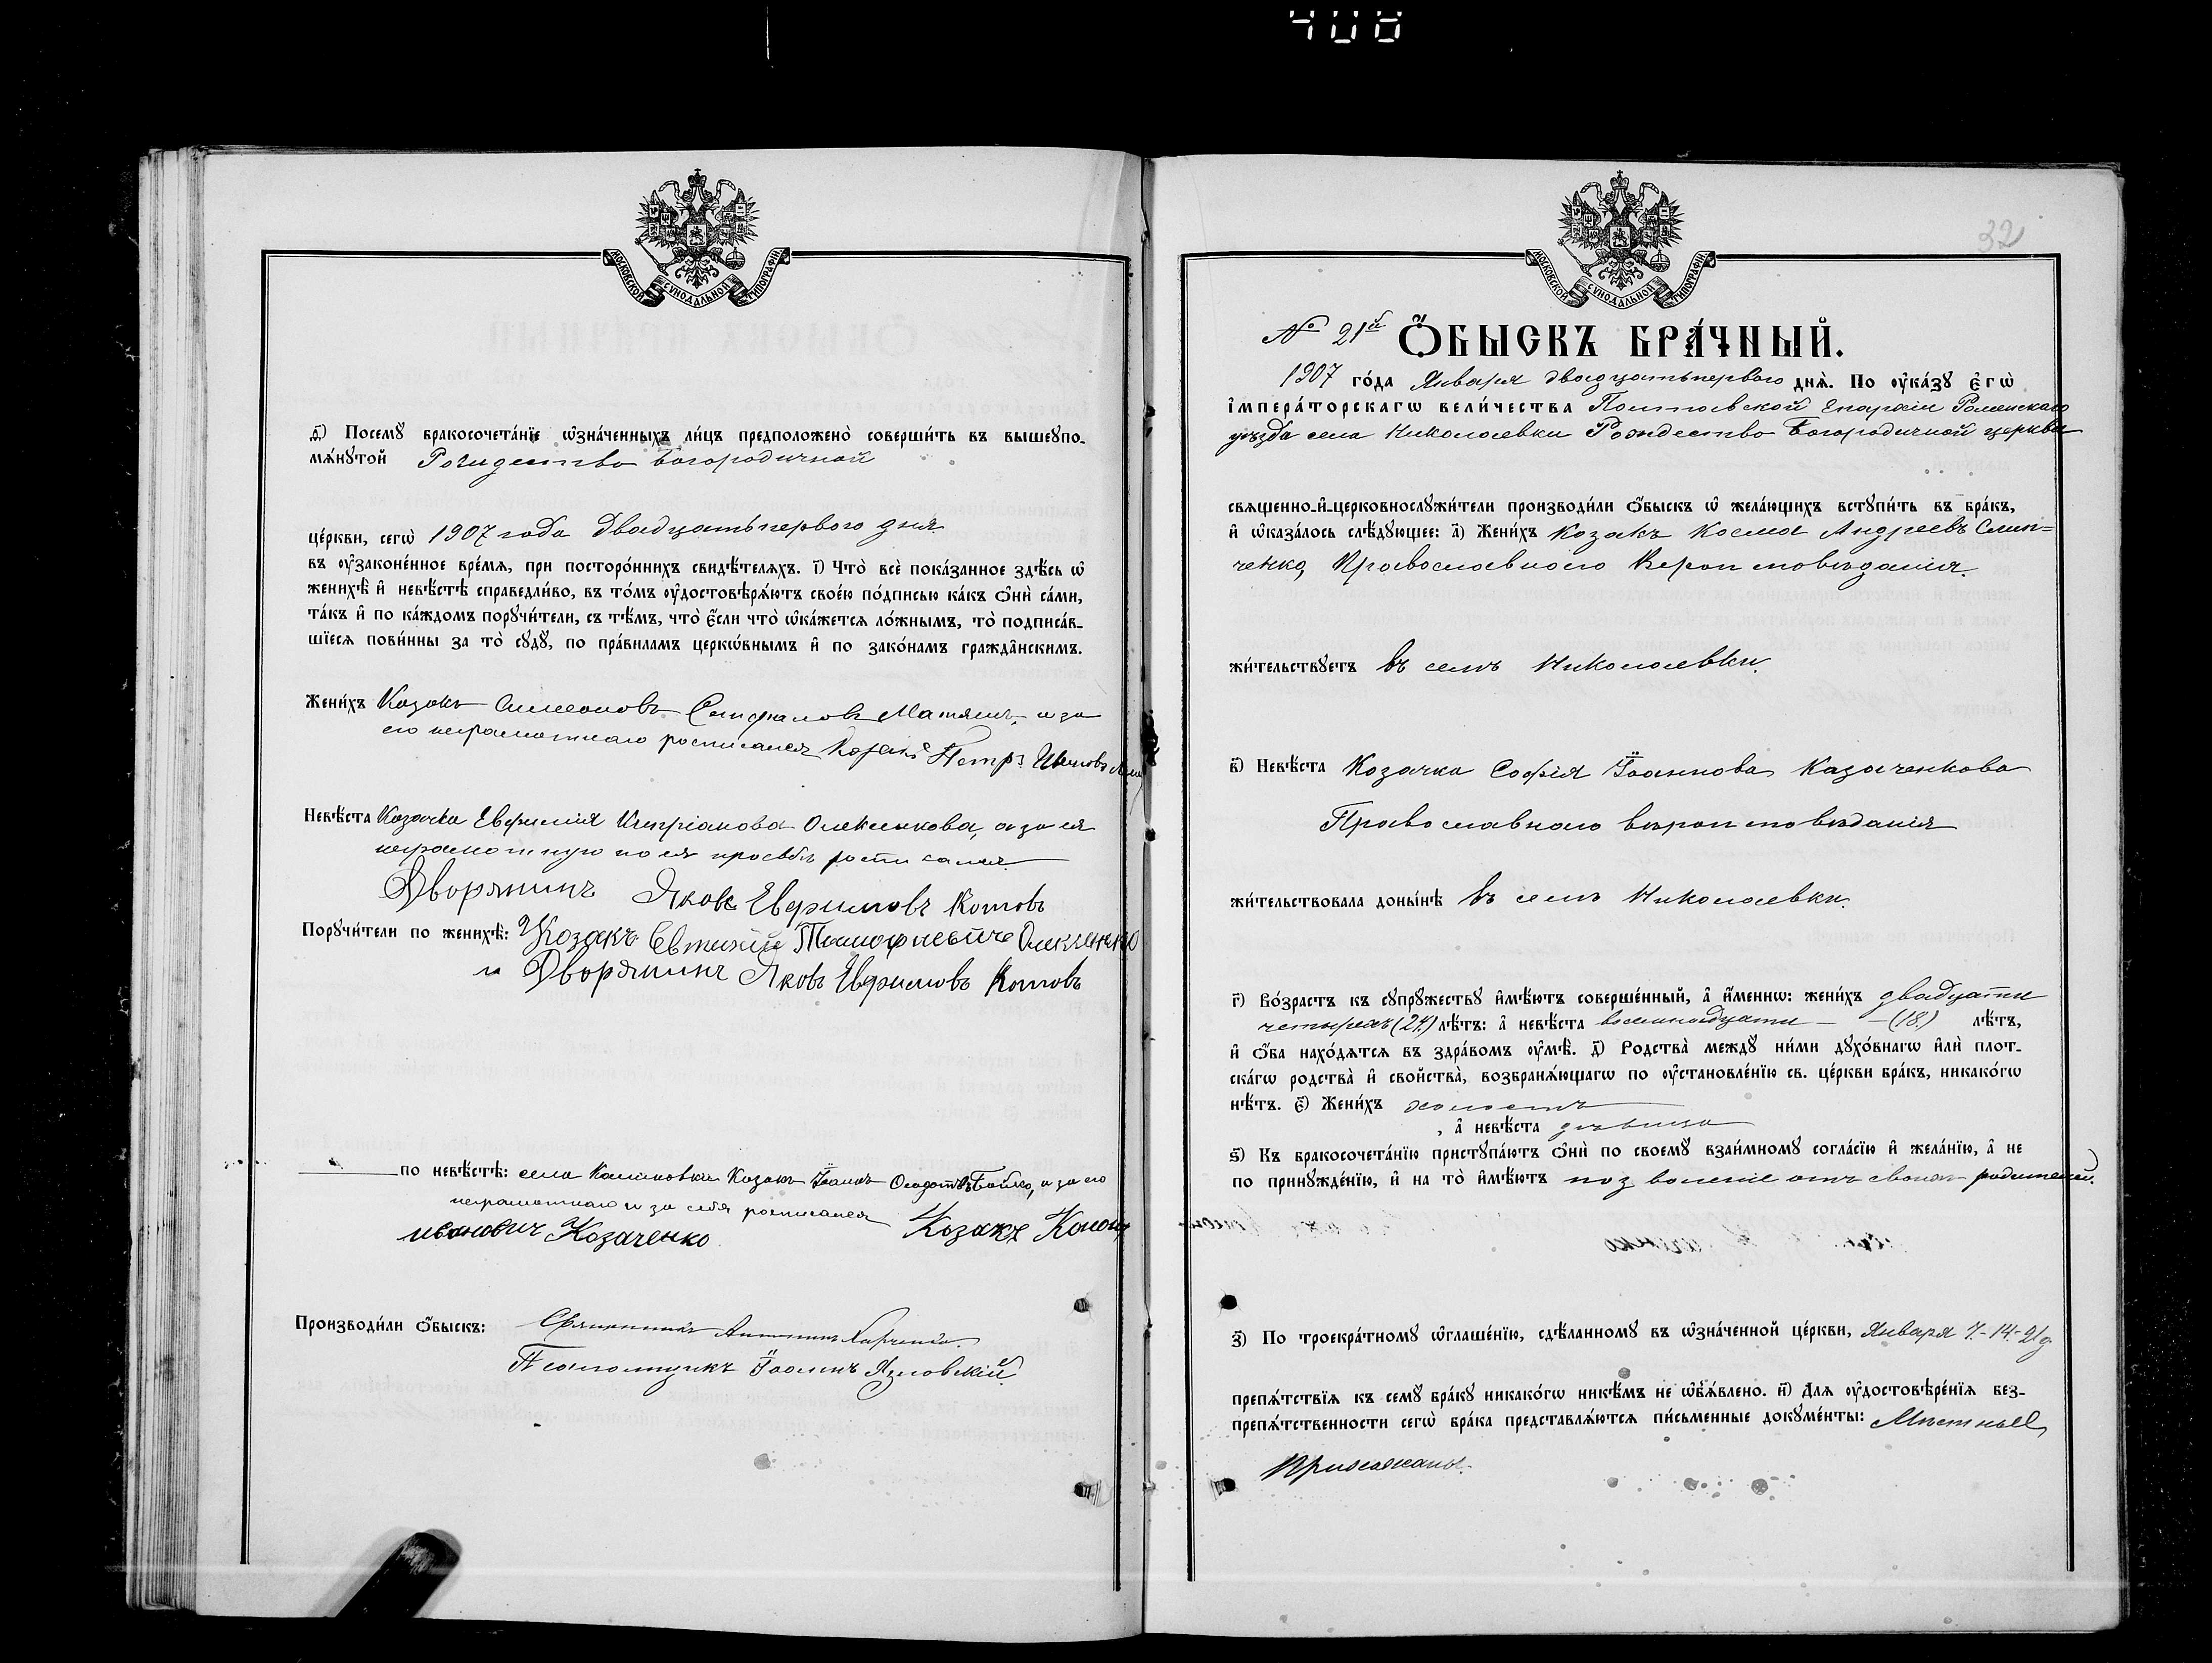 408
МОСКОВСКОЙ СѴНОДАЛЬНОЙ ТИПОГРАФІИ
ѳ҃) Посемꙋ бракосочета́нїе ѡ҆зна́ченныхъ ли́цъ предположено̀ соверши́ть въ вышеупо-
мѧ́нꙋтой Рождество Богородичной
це́ркви, сегѡ̀ 1907 года двадцать первого дня
въ ᲂу҆зако́ненное вре́мѧ, при посторо́ннихъ свидѣ́телѧхъ. і҃) Что̀ всѐ пока́занное здѣ́сь ѡ҆
женихѣ̀ и҆ невѣ́стѣ справедли́во, въ то́мъ ᲂу҆достовѣрѧ́ютъ свое́ю по́дписью ка́къ ѻ҆нѝ са́ми,
та́къ и҆ по ка́ждомъ порꙋчи́тели, съ тѣ́мъ, что̀ є҆́сли что̀ ѡ҆ка́жетсѧ ло́жнымъ, то̀ подписа́в-
шїесѧ пови́нны за то̀ сꙋдꙋ̀, по пра́виламъ церкѡ́внымъ и҆ по зако́намъ гражда̑нскимъ.
Жени́хъ Козакъ Симеоновъ Матяшъ, а за
его неграмотнаго росписался Козакъ Петръ Ивановъ
Невѣ́ста Козачка Евфимія Кипріанова Олексѣнкова, а за ея
неграмотную по ея просьбѣ росписался
Дворянинъ Яковъ Евфимовъ Котовъ
Порꙋчи́тели по женихѣ̀: Козакъ Евтихій Тимофиевичъ Олексѣнко
и Дворянинъ Яковъ Евфимовъ Котовъ
по невѣ́стѣ: села Калиновки Козакъ Іоаннъ Ѳеодотовъ Бойко, а за его
неграмотнаго и за себя росписался Козакъ Конон
иванович Козаченко
Производи́ли ѻ҆́быскъ: Священникъ Антонинъ Харченко.
Псаломщикъ Іоаннъ Язловскій
32
МОСКОВСКОЙ СѴНОДАЛЬНОЙ ТИПОГРАФІИ
№ 21й Ѻ҆́БЫСКЪ БРА́ЧНЫЙ.
1907 го́да Января двадцать первого днѧ̀. По ᲂу҆ка́зꙋ є҆гѡ̀
і҆мпера́торскагѡ вели́чества Полтавской Епархіи Роменскаго
уѣзда села Николаевки Рождество Богородичной церкви
свѧщенно-и҆-церковнослꙋжи́тели производи́ли ѻ҆́быскъ ѡ҆ жела́ющихъ встꙋпи́ть въ бра́къ,
и҆ ѡ҆каза́лось слѣ́дꙋющее: а҃) Жени́хъ Козакъ Косма Андреевъ Слип=
ченко, Православного Вероисповѣданія.
жи́тельствꙋетъ въ селѣ Николаевки.
в҃) Невѣ́ста Козачка Софія Іоаннова Казаченкова
Православного вѣроисповѣданія
жи́тельствовала доны́нѣ въ селѣ Николаевки.
г҃) Во́зрастъ къ сꙋпрꙋ́жествꙋ и҆мѣ́ютъ соверше́нный, а҆ и҆́менно: жени́хъ двадцати
четырехъ (24) лѣ́тъ: а҆ невѣ́ста восемнадцати — (18.) лѣ́тъ,
и҆ ѻ҆́ба нахо́дѧтсѧ въ здра́вомъ ᲂу҆мѣ̀. д҃) Родства̀ междꙋ ни́ми дꙋхо́внагѡ и҆лѝ плот-
ска́гѡ родства̀ и҆ свойства̀, возбранѧ́ющагѡ по ᲂу҆становле́нїю св. це́ркви бра́къ, никако́гѡ
нѣ́тъ. є҃) Жени́хъ холостъ
, а҆ невѣ́ста дѣвица
ѕ҃) Къ бракосочета́нїю пристꙋпа́ютъ ѻ҆нѝ по своемꙋ̀ взаи́мномꙋ согла́сїю и҆ жела́нїю, а҆ не
по принꙋжде́нїю, и҆ на то̀ и҆мѣ́ютъ позволеніе отъ своихъ родителей.
з҃) По троекра́тномꙋ ѡ҆глаше́нїю, сдѣ́ланномꙋ въ ѡ҆зна́ченной це́ркви, Января 7.-14.-21 д.
препѧ́тствїѧ къ семꙋ̀ бра́кꙋ никако́гѡ никѣ́мъ не ѡ҆бъѧ́влено. и҃) Длѧ ᲂу҆достовѣре́нїѧ без-
препѧ́тственности сегѡ̀ бра́ка представлѧ́ютсѧ пи́сьменные докꙋме́нты: Мѣстные
Прихожаны.